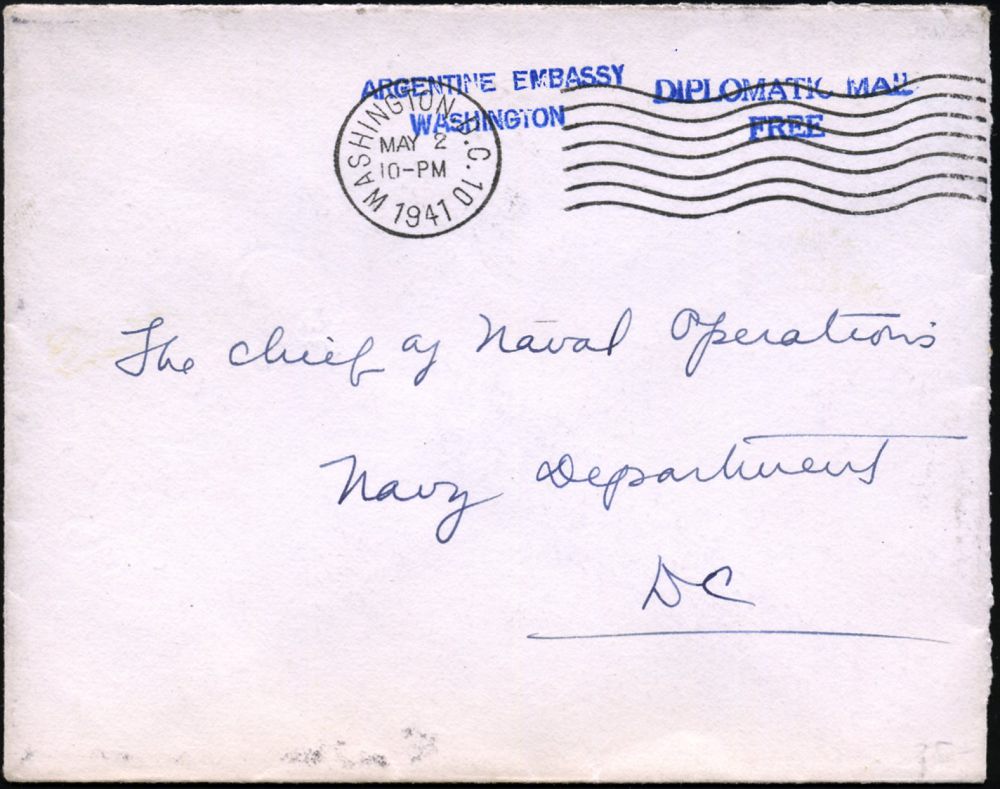 ARGENTINE EMBASSY
WASHINGTON
DIPLOMATIC MAIL
FREE
WASHINGTON D.C. 10
MAY 2
10-PM
1941
The Chief of Naval Operations
Navy Department
DC